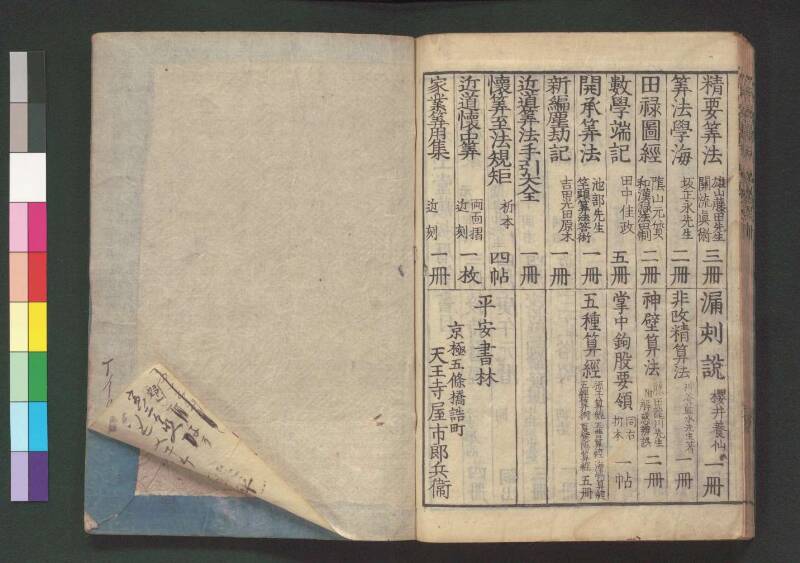 精要筭法 雄山藤田先生 關流眞術 三冊
筭法學海 坂正永先生 二冊
田禄圖經 隂山元質 二冊
數學端記 田中佳政 五冊
開承筭法 池部先生 一冊
新編塵劫記 吉田光由原本 一冊
近道筭法手引大全 一冊
懷筭至法規矩 折本 四帖
近道懷中筭 両面摺 近刻 一枚
家業筭用集 近刻 一冊
漏刻說 櫻井養仙 一冊
非改精算法 一冊
神壁算法 二冊
掌中鉤股要領 同右 折本 一帖
五種算經 五冊
平安書林
京極五條橋詰町
天王寺屋市郎兵衞